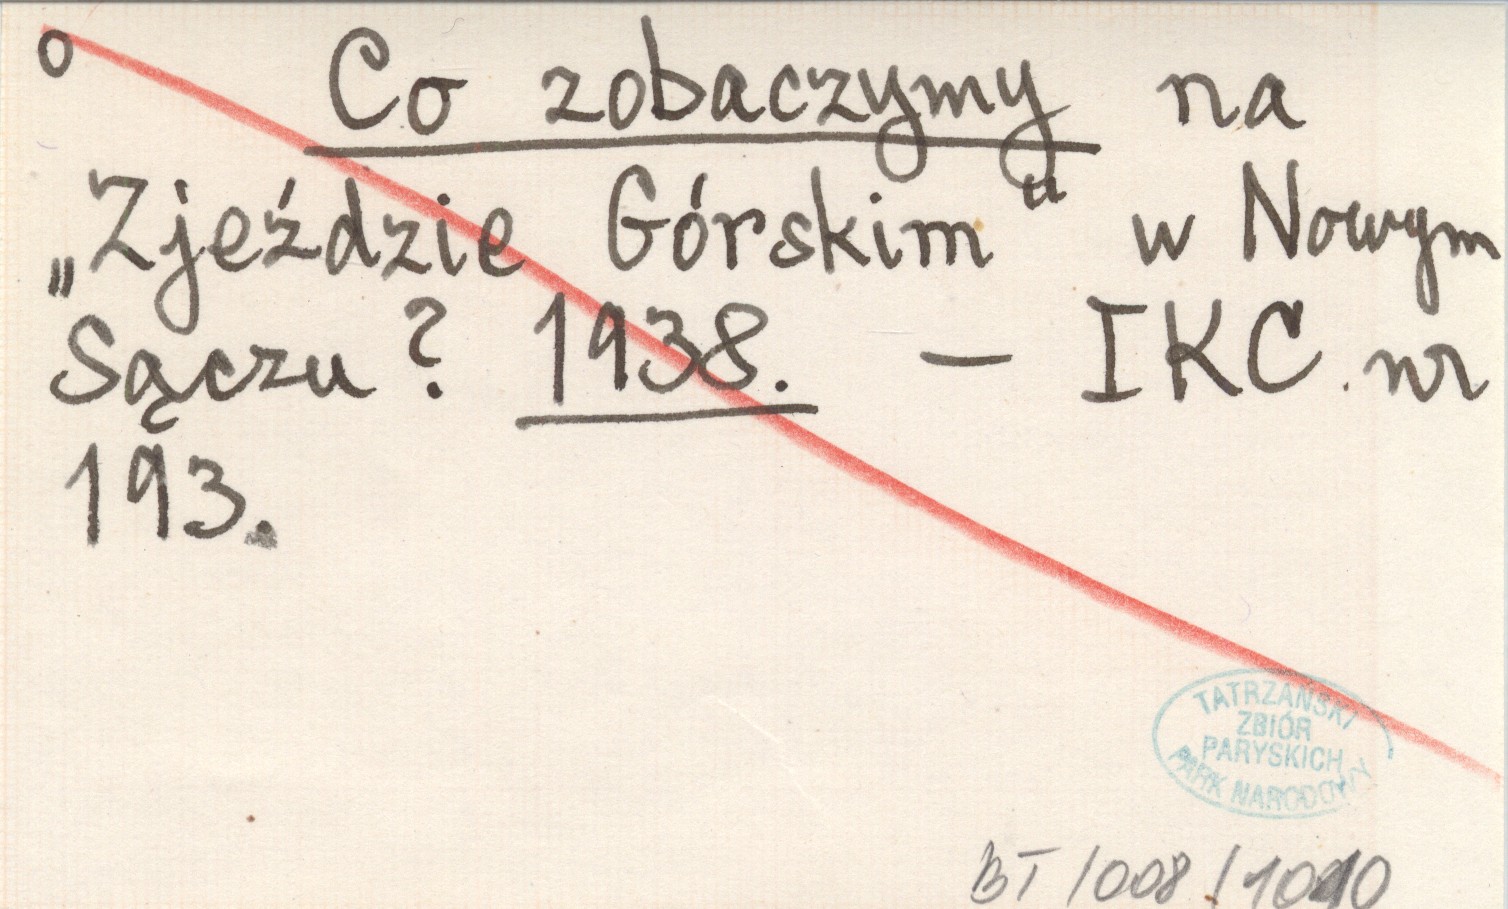 o Co zobaczymy na
„Zjeździe Górskim" w Nowym
Sączu? 1938. — IKC. nr
193.
TATRZAŃSKI
ZBIÓR
PARYSKICH
PARK NARODOWY
BT /008 /